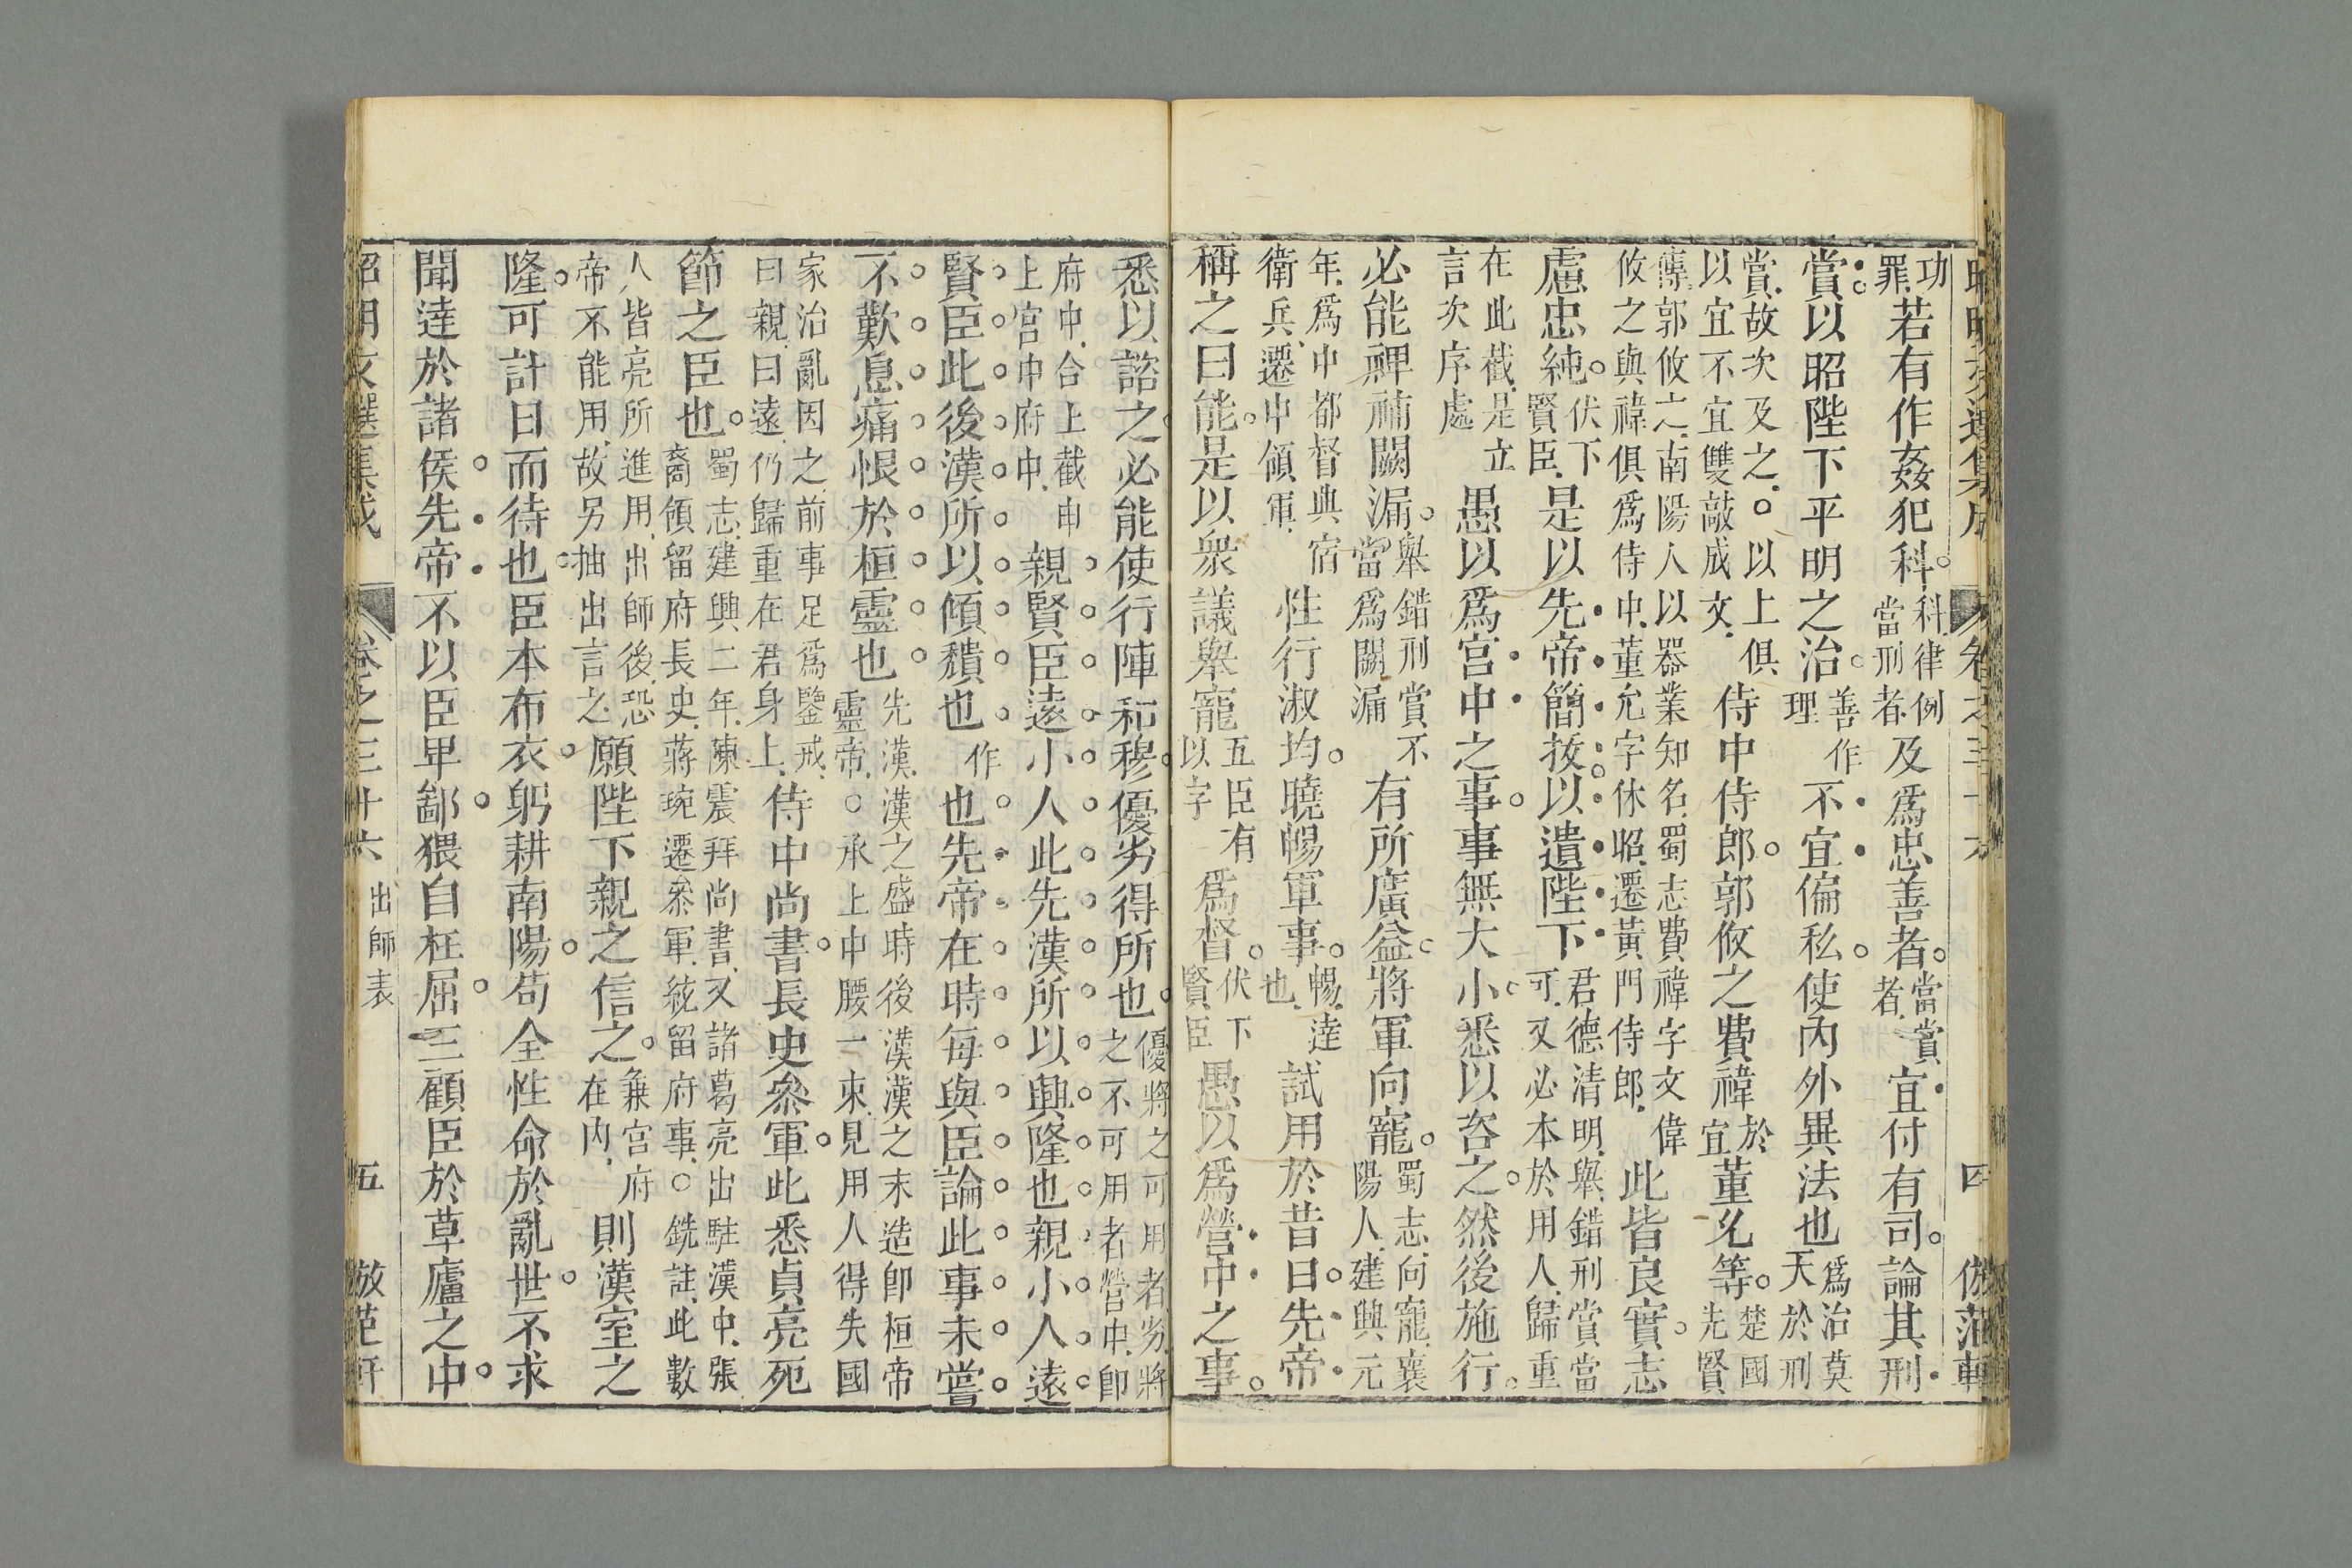 昭明文選集成 卷之三十六 四 倣范軒
功罪若有作姦犯科科律例當刑者及爲忠善者當賞者宜付有司論其刑
賞以昭陛下平明之治善作理不宜偏私使內外異法也爲治莫天於刑
賞故次及之○以上俱以宜不宜雙敲成文侍中侍郎郭攸之費禕於宜董允等楚國先賢
傳郭攸之南陽人以器業知名蜀志費禕字文偉攸之與禕俱爲侍中董允字休昭遷黃門侍郎此皆良實志
慮忠純伏下賢臣是以先帝簡拔以遺陛下君德清明舉錯刑賞當可又必本於用人歸重
在此截是立言次序處愚以爲宮中之事事無大小悉以咨之然後施行
必能裨補闕漏舉錯刑賞不當爲闕漏有所廣益將軍向寵蜀志向寵襄陽人建興元
年爲中都督典宿衛兵遷中領軍性行淑均曉暢軍事暢達也試用於昔日先帝
稱之曰能是以衆議舉寵五臣有以字爲督伏下賢臣愚以爲營中之事
悉以諮之必能使行陣和穆優劣得所也優將之可用者劣將之不可用者營中卽
府中合上截申上宮中府中親賢臣遠小人此先漢所以興隆也親小人遠
賢臣此後漢所以傾穨也作也先帝在時每與臣論此事未嘗
不歎息痛恨於桓靈也先漢漢之盛時後漢漢之末造卽桓帝靈帝○承上中腰一束見用人得失國
家治亂因之前事足爲鑒戒曰親曰遠仍歸重在君身上侍中尚書長史參軍此悉貞亮死
節之臣也蜀志建興二年陳震拜尚書又諸葛亮出駐漢中張裔領留府長史蔣琬遷參軍統留府事○銑註此數
人皆亮所進用出師後恐帝不能用故另抽出言之願陛下親之信之兼宮府在內則漢室之
隆可計日而待也臣本布衣躬耕南陽苟全性命於亂世不求
聞達於諸侯先帝不以臣卑鄙猥自枉屈三顧臣於草廬之中
昭明文選集成 卷之三十六 出師表 五 倣范軒